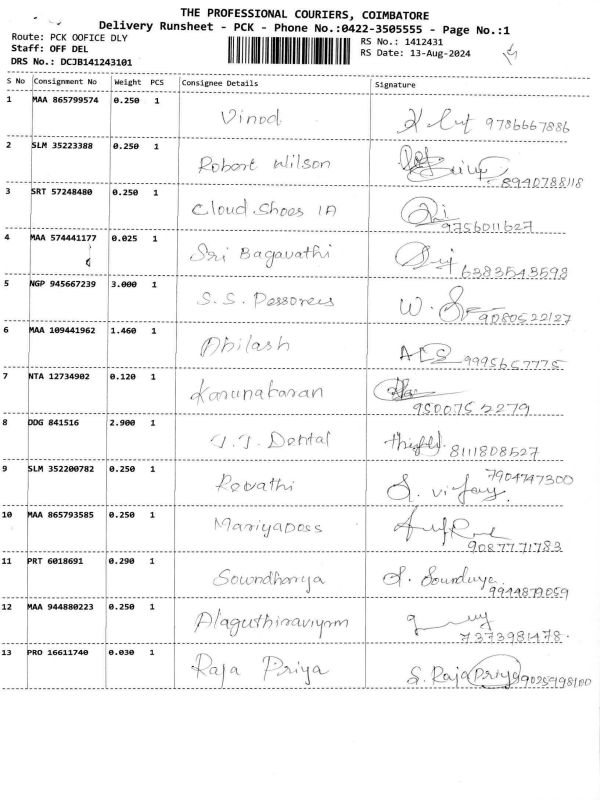 THE PROFESSIONAL COURIERS, COIMBATORE
Delivery Runsheet - PCK - Phone No.:0422-3505555 - Page No.:1
Route: PCK OOFICE DLY RS No.: 1412431
Staff: OFF DEL RS Date: 13-Aug-2024
DRS No.: DCJB141243101
S No Consignment No Weight PCS Consignee Details Signature
1 MAA 865799574 0.250 1 Vinod 9786667886
2 SLM 35223388 0.250 1 Robert Wilson 8940788118
3 SRT 57248480 0.250 1 Cloud Shoes IA 9756011627
4 MAA 574441177 0.025 1 Sri Bagavathi 6383543598
5 NGP 945667239 3.000 1 S.S. 9080522127
6 MAA 109441962 1.460 1 Abilash 9995657775
7 NTA 12734902 0.120 1 Karunakaran 9500752279
8 DDG 841516 2.900 1 J.J. Dental 8111808527
9 SLM 352200782 0.250 1 Revathi S. vijay 7904747300
10 MAA 865793585 0.250 1 Mariyadoss 9087771783
11 PRT 6018691 0.290 1 Soundhariya 9944879059
12 MAA 944880223 0.250 1 7373981478
13 PRO 16611740 0.030 1 Raja Priya S. Raja Priya 9025998100